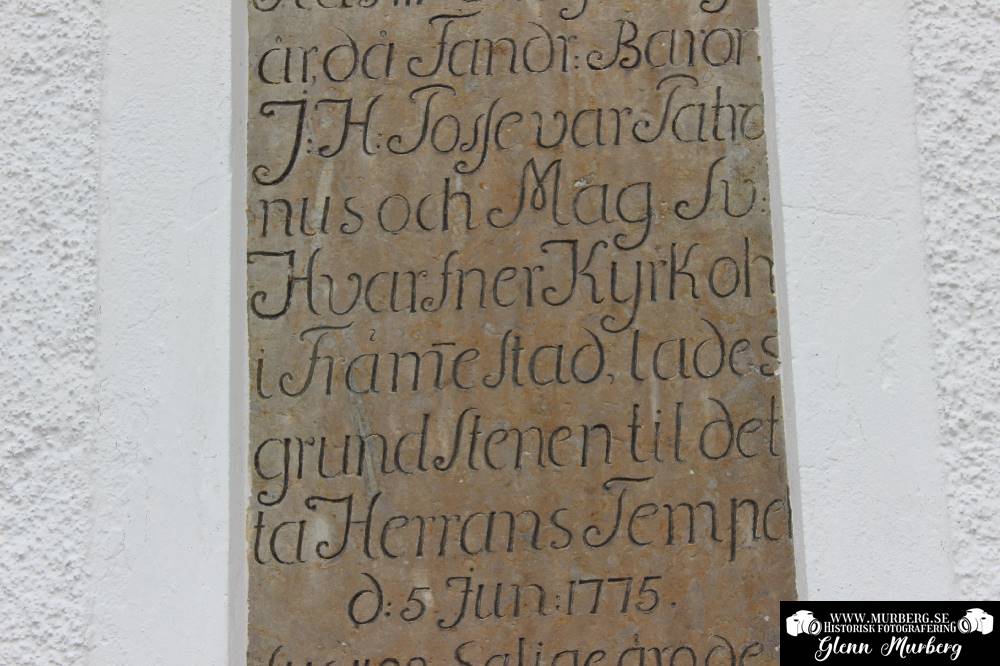 år, då Landr: Baron
J: H: Tosse var Patro
nus och Mag Sv:
Hvarfner Kyrkoh
i Främe stad, lades
grundstenen til det
ta Herrans Tempel
d: 5 Jun: 1775.
Salige
WWW.MURBERG.SE
HISTORISK FOTOGRAFERING
Glenn Murberg